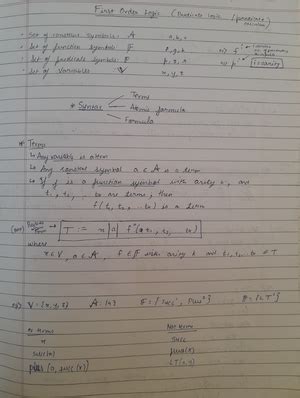 First Order Logic (Predicate Logic / predicate calculus)
• Set of constant symbols: A a, b, c
• Set of function symbols: F f, g, h
• Set of predicate symbols: P p, q, r
• Set of Variables: V x, y, z
* Syntax Terms
Atomic formula
Formula
* Terms
↳ Any variable is a term
↳ Any constant symbol a ∈ A is a term
↳ If f is a function symbol with arity k, and
t₁, t₂, ... are terms, then
f(t₁, t₂, ... tk) is a term
T ::= x | a | fᵏ(t₁, t₂, ... tk)
where
x ∈ V, a ∈ A, f ∈ F with arity k and t₁, t₂, ... tk ∈ T
eg) V = {x, y, z} A: {0} F = {succ¹, plus²} P = {LT²}
terms Not terms
x succ
succ(x) plus(x)
plus(0, succ(x)) LT(0, y)